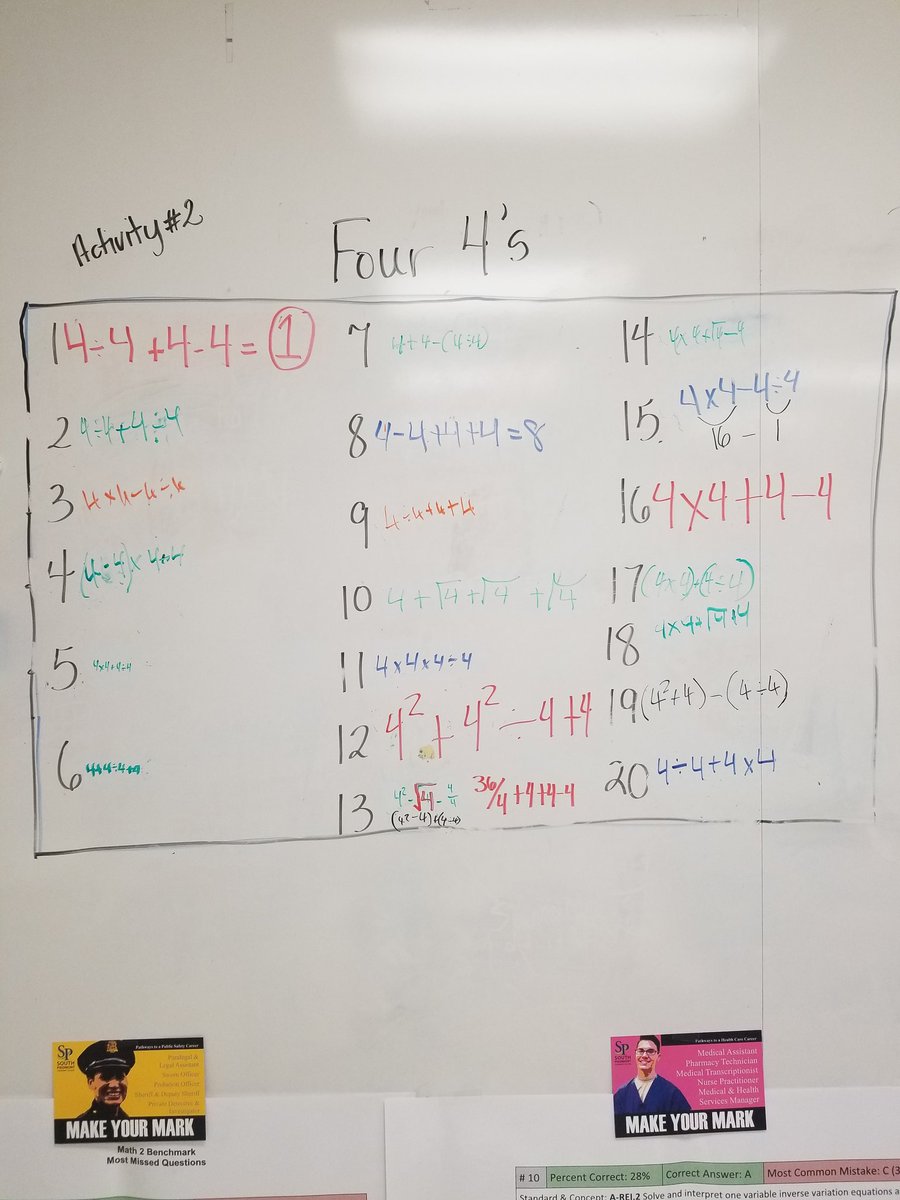 Activity #2
Four 4's
1 4÷4 +4-4 = 1
2 4÷4+4÷4
3 4×4-4÷4
4 (4÷4)×4+4
5 4×4+4÷4
6
7 4+4-(4÷4)
8 4-4+4+4=8
9 4÷4+4+4
10 4+√4+√4+√4
11 4×4×4÷4
12 4²+4²÷4+4
13 4²-√4-4/4 36/4+4+4-4
(4²-4)+(4÷4)
14 4×4+√4-4
15. 4×4-4÷4
16 - 1
16 4×4+4-4
17 (4×4)+(4÷4)
18 4×4+√4+4
19 (4²+4)-(4÷4)
20 4÷4+4×4
SP
SOUTH
PIEDMONT
Pathways to a Public Safety Career
Paralegal &
Legal Assistant
Sworn Officer
Probation Officer
Sheriff & Deputy Sheriff
Private Detective &
Investigator
MAKE YOUR MARK
Math 2 Benchmark
Most Missed Questions
SP
SOUTH
PIEDMONT
Pathways to a Health Care Career
Medical Assistant
Pharmacy Technician
Medical Transcriptionist
Nurse Practitioner
Medical & Health
Services Manager
MAKE YOUR MARK
# 10 Percent Correct: 28% Correct Answer: A Most Common Mistake: C (3
Standard & Concept: A-REI.2 Solve and interpret one variable inverse variation equations a